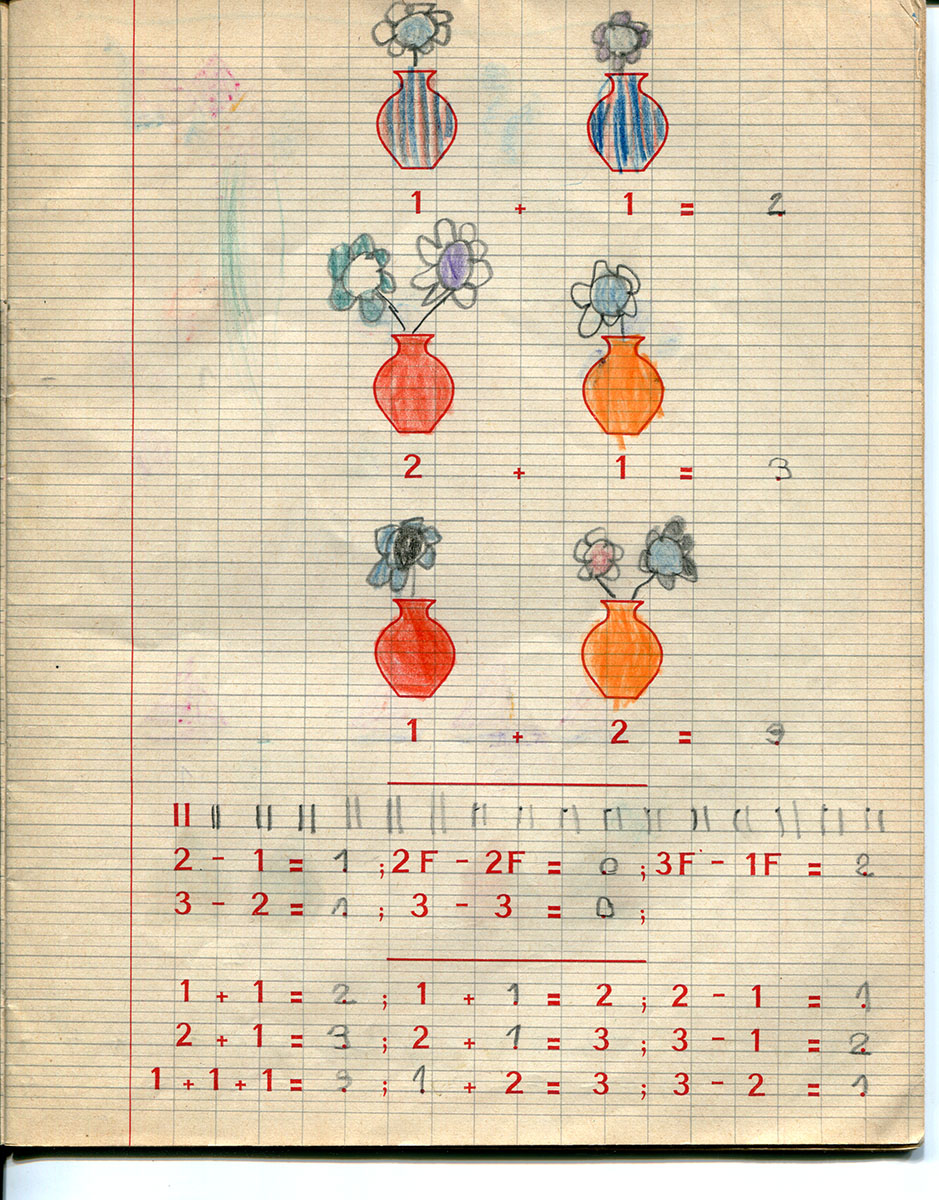 1 + 1 = 2
2 + 1 = 3
1 + 2 = 3
|| || || || || || || || || || || || || || || || ||
2 - 1 = 1 ; 2F - 2F = 0 ; 3F - 1F = 2
3 - 2 = 1 ; 3 - 3 = 0 ;
1 + 1 = 2 ; 1 + 1 = 2 ; 2 - 1 = 1
2 + 1 = 3 ; 2 + 1 = 3 ; 3 - 1 = 2
1 + 1 + 1 = 3 ; 1 + 2 = 3 ; 3 - 2 = 1